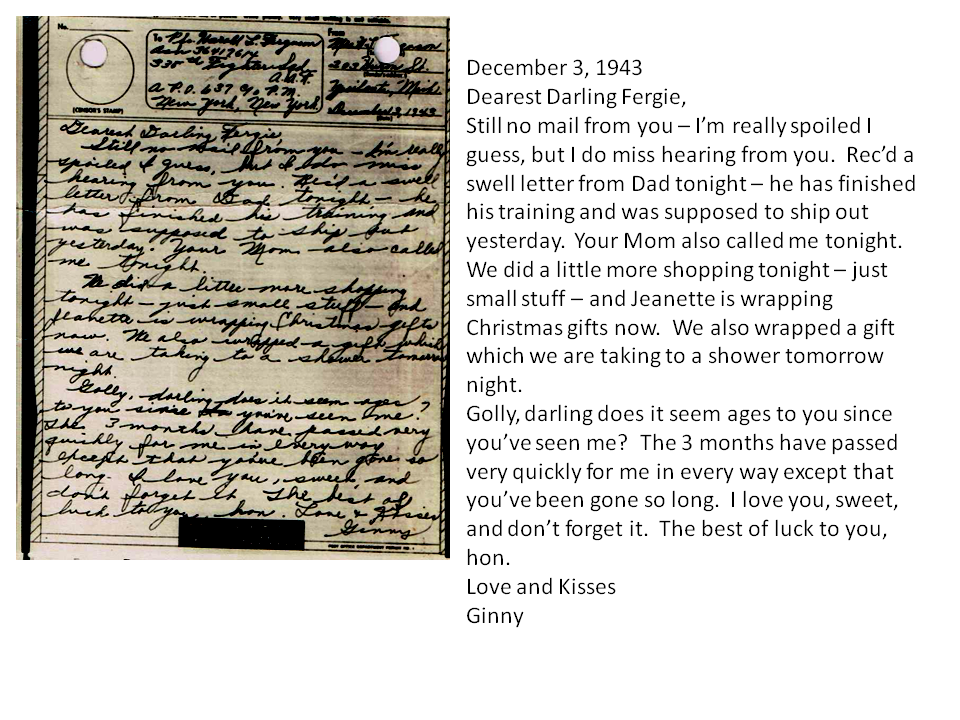 No.
To
Pfc. Harold L. Ferguson
ASN 36417614
330th Fighter Sqd.
A.A.F.
A.P.O. 637 c/o P.M.
New York, New York
From
303
December 3, 1943
(CENSOR'S STAMP)
Dearest Darling Fergie,
Still no mail from you – I'm really
spoiled I guess, but I do miss
hearing from you. Rec'd a swell
letter from Dad tonight – he
has finished his training and
was supposed to ship out
yesterday. Your Mom also called
me tonight.
We did a little more shopping
tonight – just small stuff – and
Jeanette is wrapping Christmas gifts
now. We also wrapped a gift which
we are taking to a shower tomorrow
night.
Golly, darling does it seem ages
to you since you've seen me?
The 3 months have passed very
quickly for me in every way
except that you've been gone so
long. I love you, sweet, and
don't forget it. The best of
luck to you, hon. Love & Kisses
Ginny
December 3, 1943
Dearest Darling Fergie,
Still no mail from you – I'm really spoiled I
guess, but I do miss hearing from you. Rec'd a
swell letter from Dad tonight – he has finished
his training and was supposed to ship out
yesterday. Your Mom also called me tonight.
We did a little more shopping tonight – just
small stuff – and Jeanette is wrapping
Christmas gifts now. We also wrapped a gift
which we are taking to a shower tomorrow
night.
Golly, darling does it seem ages to you since
you've seen me? The 3 months have passed
very quickly for me in every way except that
you've been gone so long. I love you, sweet,
and don't forget it. The best of luck to you,
hon.
Love and Kisses
Ginny